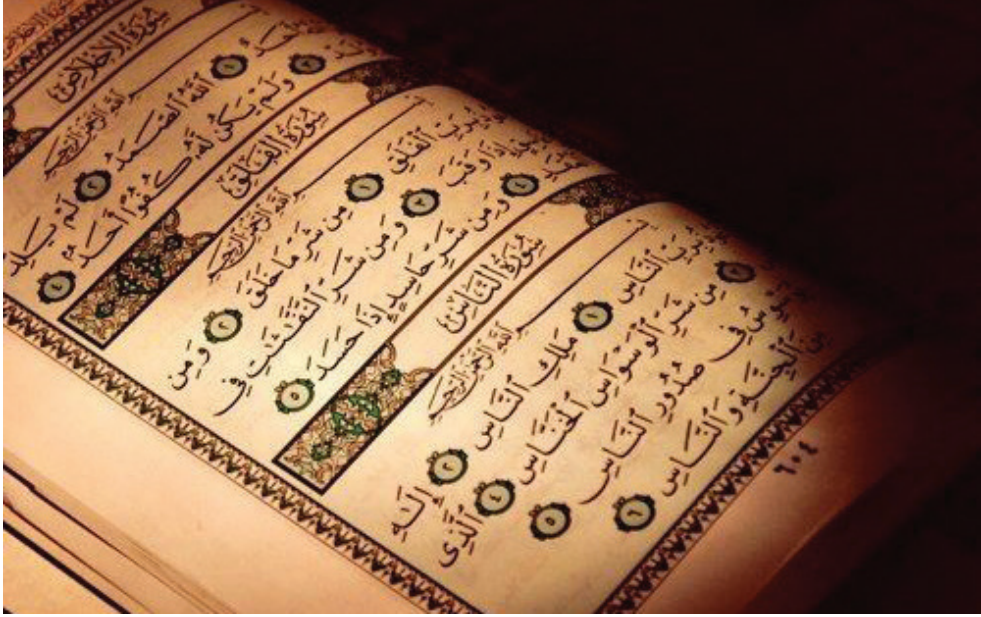 سُورَةُ الإِخْلَاصِ
ٱللَّهِ ٱلرَّحْمَٰنِ ٱلرَّحِيمِ
أَحَدٌ ١ ٱللَّهُ ٱلصَّمَدُ ٢ لَمْ يَلِدْ
٣ وَلَمْ يَكُن لَّهُۥ كُفُوًا أَحَدٌۢ ٤
سُورَةُ الفَلَقِ
ٱللَّهِ ٱلرَّحْمَٰنِ ٱلرَّحِيمِ
بِرَبِّ ٱلْفَلَقِ ١ مِن شَرِّ مَا خَلَقَ ٢ وَمِن
إِذَا وَقَبَ ٣ وَمِن شَرِّ ٱلنَّفَّٰثَٰتِ فِى
٤ وَمِن شَرِّ حَاسِدٍ إِذَا حَسَدَ ٥
سُورَةُ النَّاسِ
ٱللَّهِ ٱلرَّحْمَٰنِ ٱلرَّحِيمِ
بِرَبِّ ٱلنَّاسِ ١ مَلِكِ ٱلنَّاسِ ٢ إِلَٰهِ
٣ مِن شَرِّ ٱلْوَسْوَاسِ ٱلْخَنَّاسِ ٤ ٱلَّذِى
يُوَسْوِسُ فِى صُدُورِ ٱلنَّاسِ ٥
مِنَ ٱلْجِنَّةِ وَٱلنَّاسِ ٦
٦٠٤